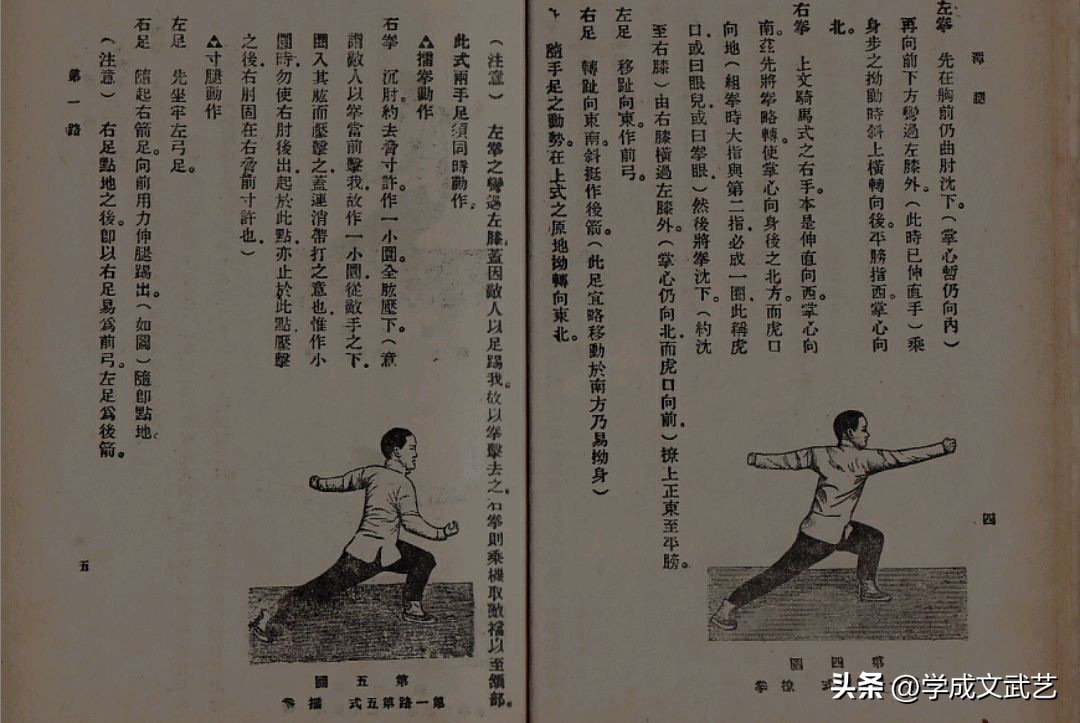 潭腿
左拳　先在胸前仍曲肘沈下。(掌心暫仍向內)
再向前下方彎過左膝外。(此時已伸直手)乘
身步之拗動時斜上橫轉向後。平膀指西。掌心向
北。
右拳　上文騎馬式之右手。本是伸直向西。掌心向
南。茲先將拳略轉。使掌心向身後之北方。而虎口
向地(組拳時大指與第二指必成一圈。此稱虎
口。或曰眼兒。或曰拳眼。)然後將拳沈下。(約沈
至右膝)由右膝橫過左膝外。(掌心仍向北。而虎口向前。)撩上正東至平膀。
左足　移趾向東。作前弓。
右足　轉趾向東南。斜挺作後箭。(此足宜略移動於南方乃易拗身)
隨手足之動勢。在上式之原地拗轉向東北。
四
第四圖
式 撩拳
(注意)　左拳之彎過左膝。蓋因敵人以足踢我。故以拳擊去之。右拳則乘機取敵襠以至頷部。
此式兩手足須同時動作。
擂拳動作
右拳　沉肘。約去脅寸許。作一小圈。全肱壓下。(意
謂敵人以拳當前擊我。故作一小圈。從敵手之下。
圈入其肱而壓擊之。蓋連消帶打之意也。惟作小
圈時。勿使右肘後出。起於此點。亦止於此點。壓擊
之後。右肘固在右脅前寸許也。)
寸腿動作
左足　先坐牢左弓足。
右足　隨起右箭足。向前用力伸腿踢出。(如圖)隨卽點地。
(注意)　右足點地之後。卽以右足易爲前弓。左足爲後箭。
第一路
五
第五圖
第一路第五式 擂拳
头条 @学成文武艺